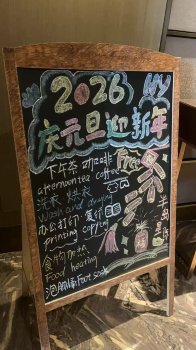 2026
庆元旦迎新年
下午茶 咖啡 Free
afternoontea coffee
洗衣 烘衣
Wash and drying
办公打印 复印
printing copying
食物加热
Food heating
泡脚桶 Foot soak